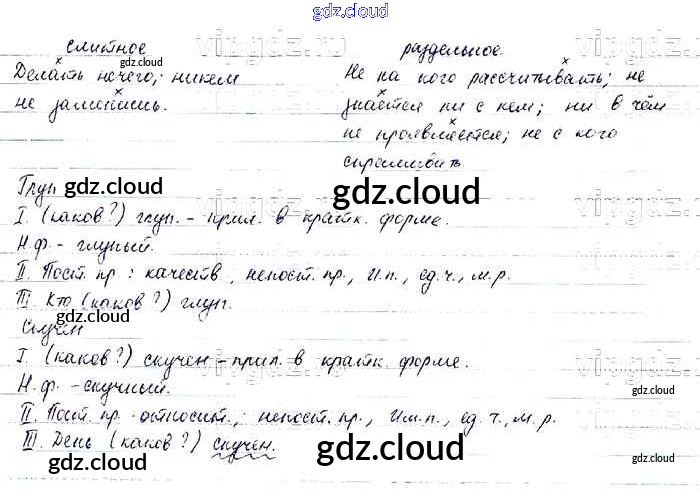 gdz.cloud
слитное раздельное
Делать нечего; никем Не на кого рассчитывать; не
не занимаясь. знается ни с кем; ни в чём
не проявляется; не с кого
спрашивать
Глуп
gdz.cloud gdz.cloud
I. (каков?) глуп. - прил. в кратк. форме.
Н.ф. - глупый.
gdz.cloud
II. Пост. пр: качеств, непост. пр., И.п., ед.ч., м.р.
III. Кто (каков?) глуп.
gdz.cloud
Скучен
I. (каков?) скучен - прил. в кратк. форме.
Н.ф - скучный.
gdz.cloud
II. Пост. пр - относит.; непост. пр., Им.п., ед.ч., м.р.
III. День (каков?) скучен.
gdz.cloud gdz.cloud gdz.cloud